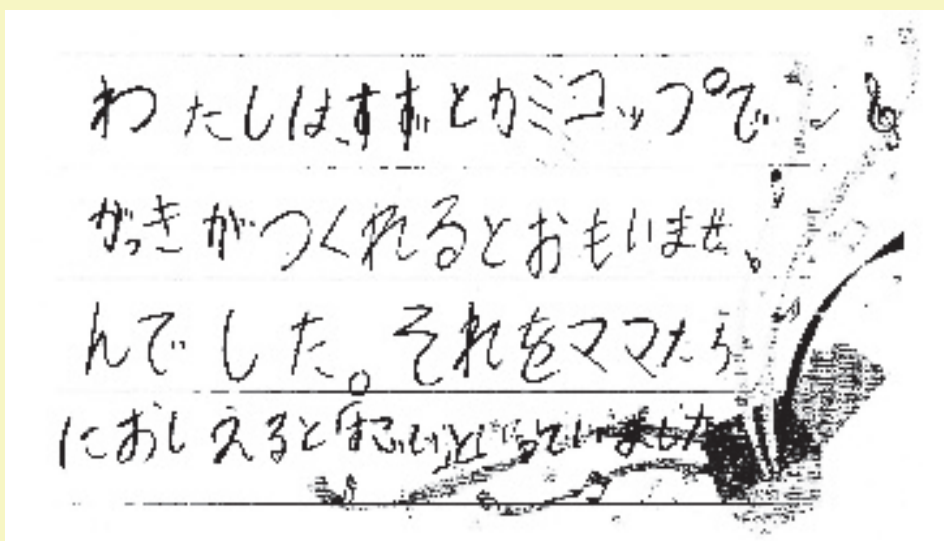 わたしは、すずとカミコップで
がっきがつくれるとおもいませ
んでした。それをママたち
におしえるとほしいといっていました